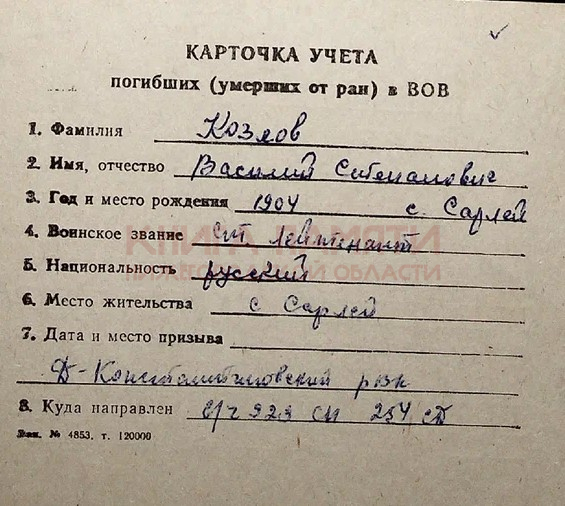 КАРТОЧКА УЧЕТА
погибших (умерших от ран) в ВОВ
1. Фамилия Козлов
2. Имя, отчество Василий Степанович
3. Год и место рождения 1904 с. Сарлей
4. Воинское звание ст. лейтенант
КНИГА ПАМЯТИ
5. Национальность русский
НИЖЕГОРОДСКОЙ ОБЛАСТИ
6. Место жительства с Сарлей
7. Дата и место призыва
Д-Константиновский рвк
8. Куда направлен в/ч 929 сп 254 сд
Зак. № 4853. т. 120000